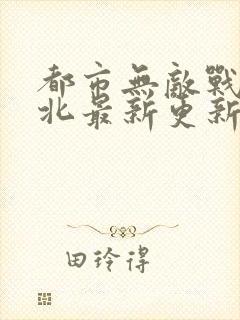 都市無敵戰
北最新更新
田玲得